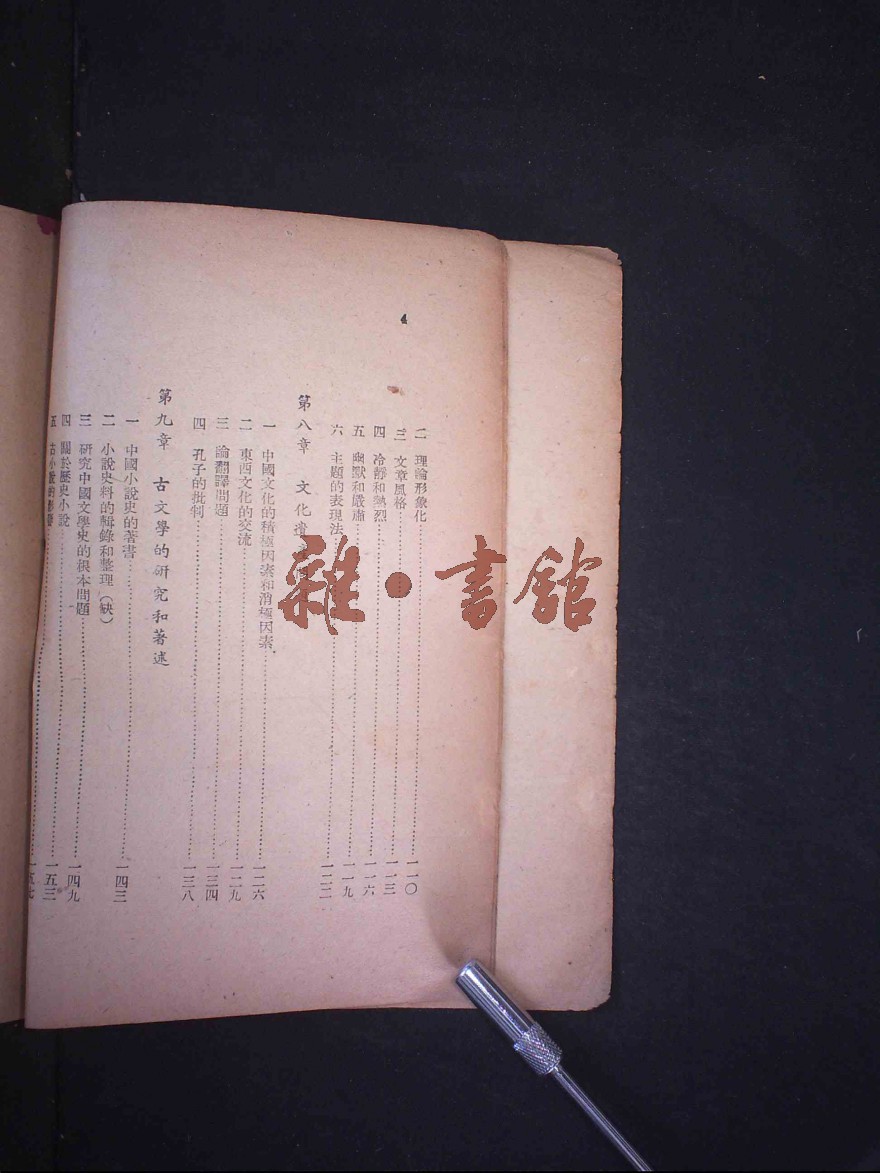 4
二 理論形象化……一一〇
三 文章風格……一一三
四 冷靜和熱烈……一一六
五 幽默和嚴肅……一一九
六 主題的表現法……一二二
第八章 文化遺
一 中國文化的積極因素和消極因素……一二六
二 東西文化的交流……一二九
三 論翻譯問題……一三四
四 孔子的批判……一三八
第九章 古文學的研究和著述
一 中國小說史的著書……一四三
二 小說史料的輯錄和整理（缺）
三 研究中國文學史的根本問題……一四九
四 關於歷史小說……一五三
五 古小說的影響……一五七
雜·書館